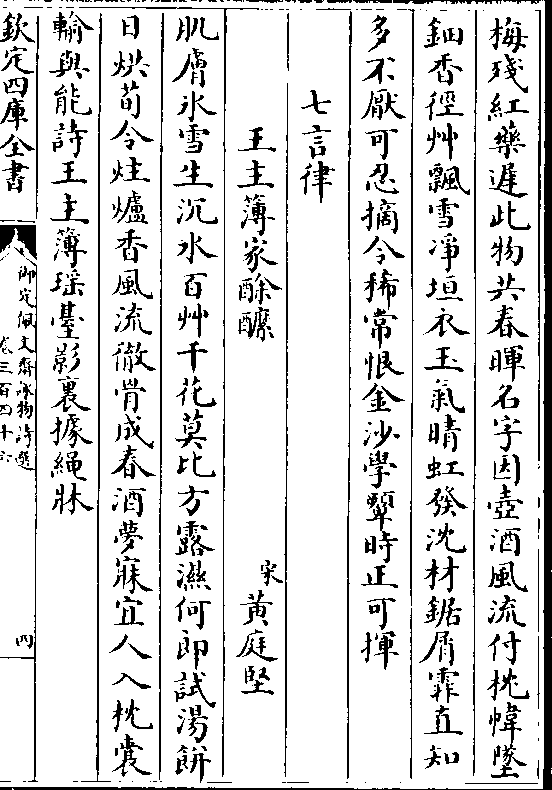 梅殘紅藥遲此物共春暉名字因壺酒風流付枕幃墜
鈿香徑艸飄雪淨垣衣玉氣晴虹發沈材鋸屑霏直知
多不厭可忍摘令稀常恨金沙學顰時正可揮
七言律
王主簿家酴醾
宋黃庭堅
肌膚氷雪生沉水百艸千花莫比方露濕何郎試湯餅
日烘荀令炷爐香風流徹骨成春酒夢寐宜人入枕囊
輸與能詩王主簿瑶臺影裏據繩牀
欽定四庫全書
御定佩文齋詠物詩選
卷三百四十六
四